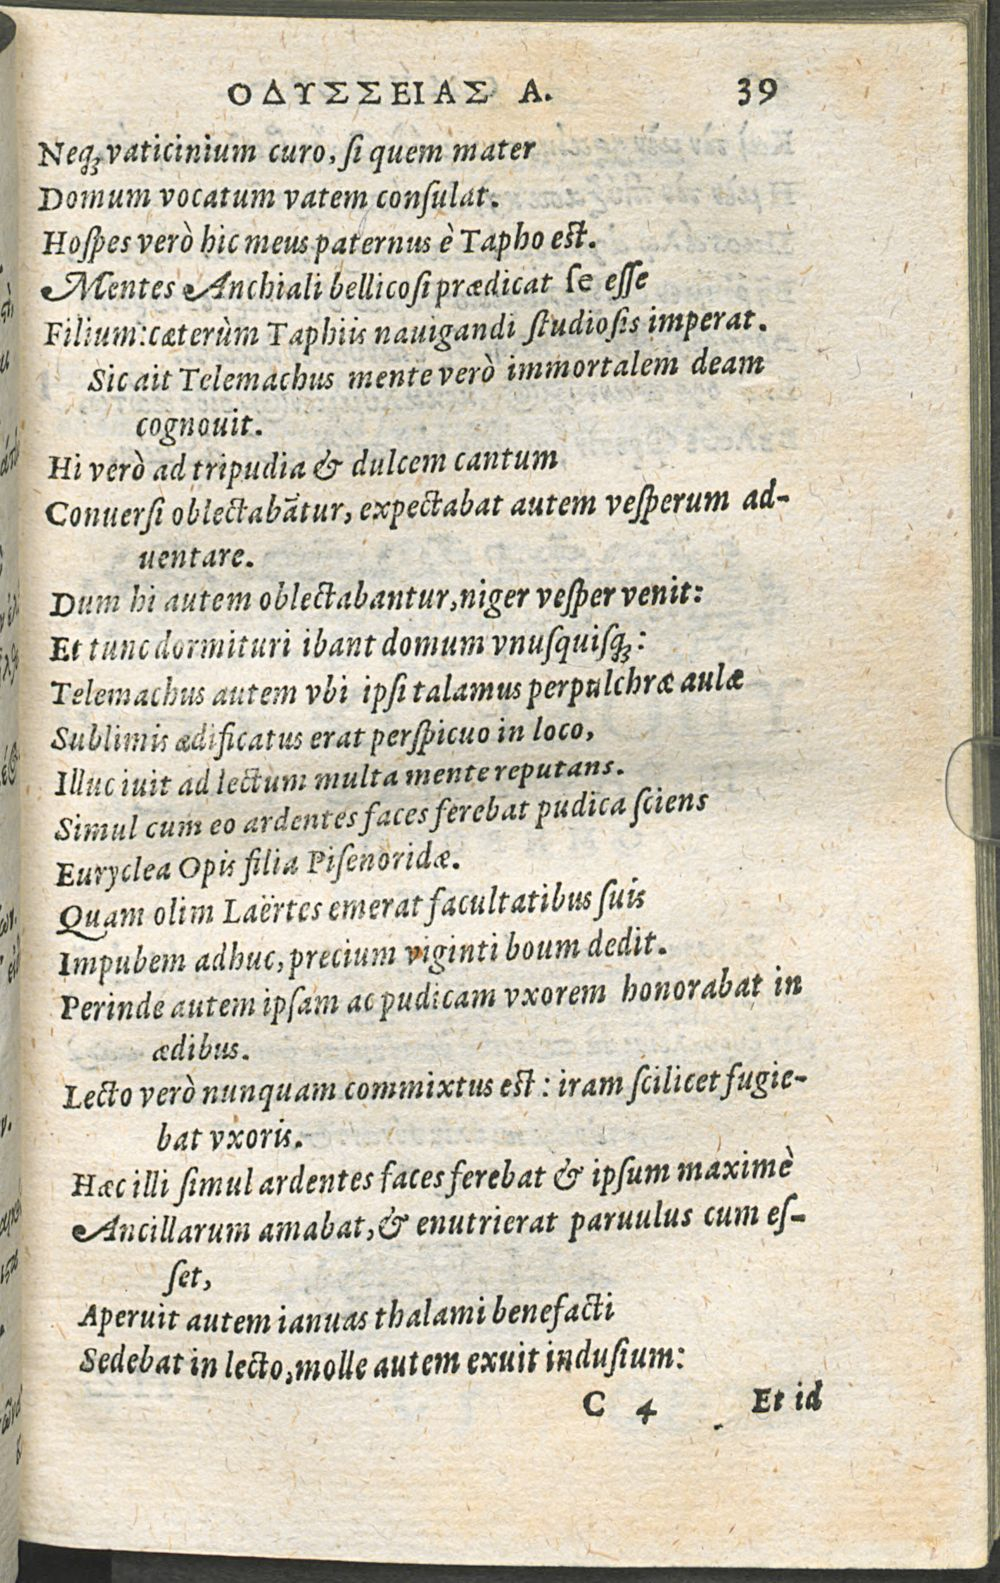 ΟΔΥΣΣΕΙΑΣ Α. 39
Neq́ꝫ vaticinium curo, ſi quem mater
Domum vocatum vatem conſulat.
Hoſpes verò hic meus paternus è Tapho est.
Mentes Anchiali bellicoſi prædicat ſe eſſe
Filium: cæterùm Taphiis nauigandi ſtudioſis imperat.
Sic ait Telemachus mente verò immortalem deam
cognouit.
Hi verò ad tripudia & dulcem cantum
Conuerſi oblectabãtur, expectabat autem veſperum ad-
uentare.
Dum hi autem oblectabantur, niger veſper venit:
Et tunc dormituri ibant domum vnuſquiſq́ꝫ:
Telemachus autem vbi ipſi talamus perpulchræ aulæ
Sublimis ædificatus erat perſpicuo in loco,
Illuc iuit ad lectum multa mente reputans.
Simul cum eo ardentes faces ferebat pudica ſciens
Euryclea Opis filia Piſenoridæ.
Quam olim Laërtes emerat facultatibus ſuis
Impubem adhuc, precium viginti boum dedit.
Perinde autem ipſam ac pudicam vxorem honorabat in
ædibus.
Lecto verò nunquam commixtus est: iram ſcilicet fugie-
bat vxoris.
Hæc illi ſimul ardentes faces ferebat & ipſum maximè
Ancillarum amabat, & enutrierat paruulus cum eſ-
ſet,
Aperuit autem ianuas thalami benefacti
Sedebat in lecto, molle autem exuit induſium:
C 4 Et id